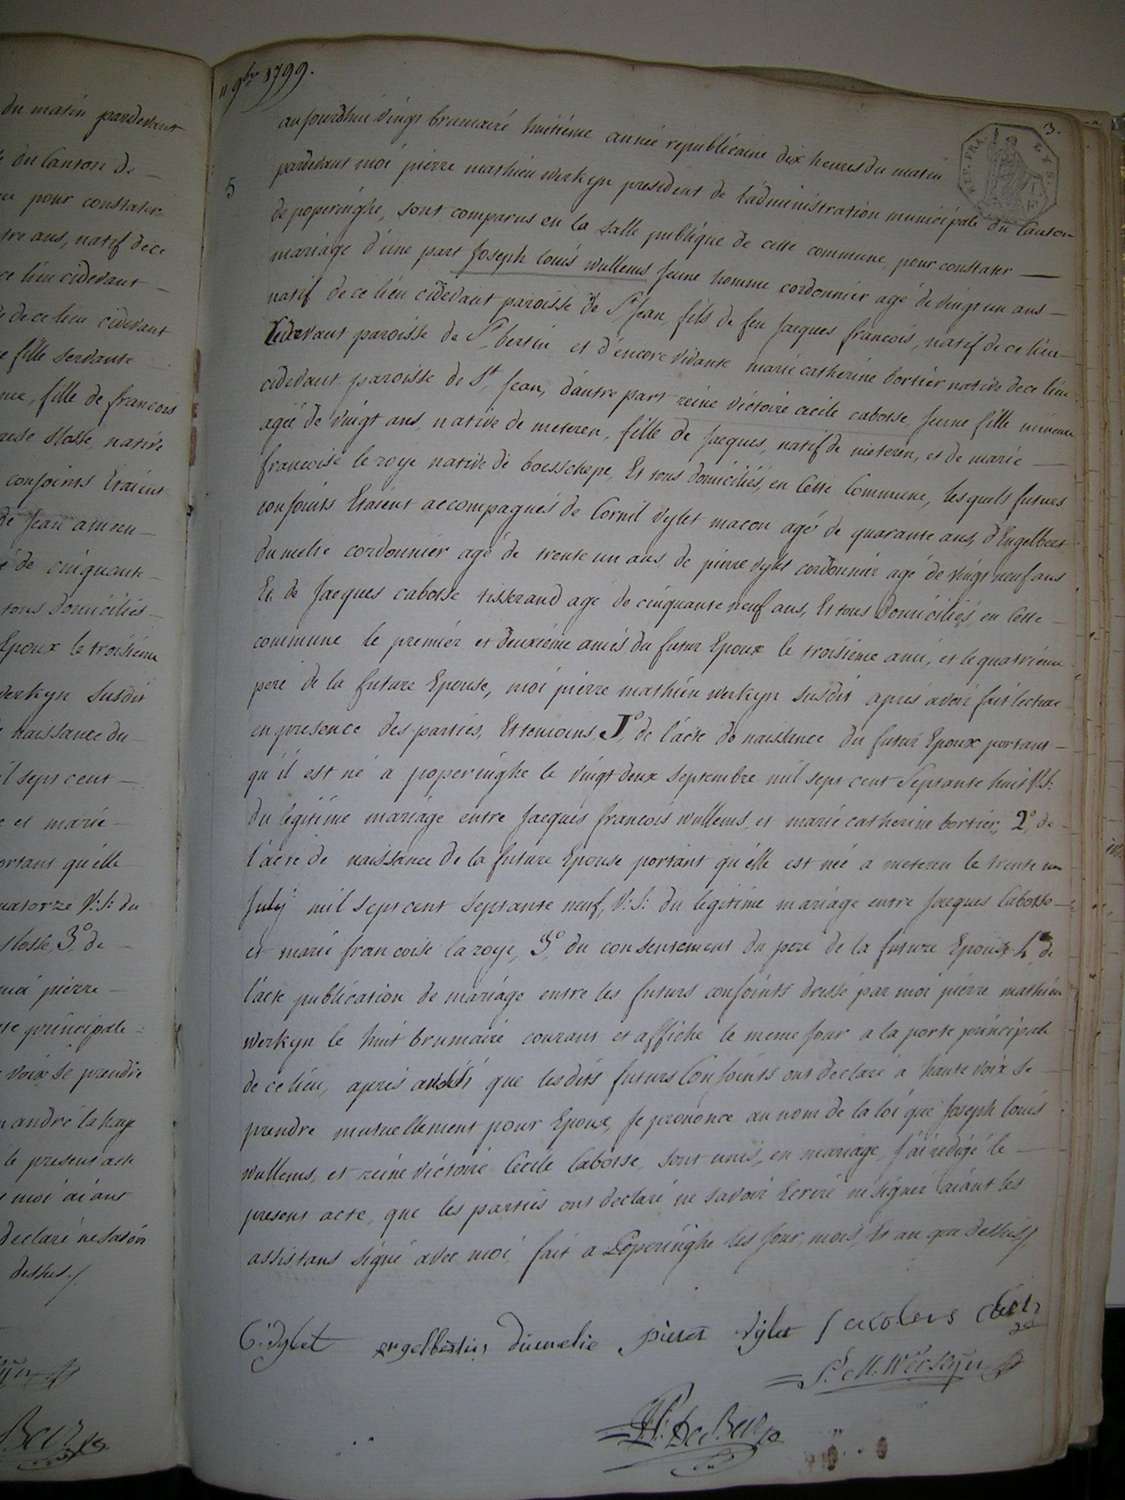 du matin pardevant
du Canton de
pour constater
tre ans, natif de ce
ce lieu cidevant
de ce lieu cidevant
e fille servante
fille de francois
natívè
conjoints Etaient
de Jean
de cinquante
tous domiciliés
Epoux le troisiéme
Werkyn susdit
naissance du
il sept cent
e et marié
ortant qu'élle
uatorzé V:S: du
3.° de
moi pierre
porte principale
voix se prendre
andré
le present acte
moi aiant
declaré ne savoir
dessus
11 9.bre 1799.
3.
REP. FRA.
5
aujourdhui vingt brumaire huitiéme année republicaine dix heures du matin
pardevant moi pierre mathieu werkyn president de l'administration municipale du Canton
de poperinghe, sont comparus en la salle publique de cette commune pour constater
mariage d'une part Joseph louis wullems jeune homme cordonnier agé de vingt un ans
natif de ce lieu cidevant paroisse de S.t Jean, fils de feu Jacques francois, natif de ce lieu
Cidevant paroisse de S.t bertin et d'encore vivante marie catherine bortier native de ce lieu
cidevant paroisse de S.t Jean, d'autre part reine victoire cecile cabosse jeune fille mineure
agée de vingt ans, native de meteren, fille de Jacques, natif de meteren, et de marie
francoise le roye native de boesschepe, Et tous domiciliés, en Cette Commune, lesquels futurs
conjoints Etaient accompagnés de Cornil vylet macon agé de quarante ans, d'Engelbert
dumelie cordonnier agé de trente un ans de pierre vylet cordonnier agé de vingt neuf ans
Et de Jacques cabosse tisserand agé de cinquante neuf ans, Et tous domiciliés, en Cette
commune le premier et deuxiéme amis du futur Epoux le troisiéme ami, et le quatriéme
pere de la future Epouse, moi pierre mathieu werkyn susdit aprés avoir fait lecture
en presence des parties, Et temoins 1.° de l'acte de naissence du futur Epoux portant
qu'il est né a poperinghe le vingt deux septembre mil sept cent septante huit V:S:
du légitime mariage entre Jacques francois wullems, et marie catherine bortier, 2.° de
l'acte de naissance de la future Epouse portant qu'elle est née a meteren le trente un
July mil sept cent septante neuf, V:S: du legitime mariage entre Jacques Cabosse
et marie francoise la roye, 3.° du consentement du pere de la future Epoux 4.° de
l'acte publication de mariage entre les futurs conjoints dressé par moi pierre mathieu
werkyn le huit brumaire courant et affiché le meme jour a la porte principale
de ce lieu, aprés aussi que lesdits futurs Conjoints ont declaré a haute voix se
prendre mutuellement pour Epoux, Je prononce au nom de la loi que Joseph louis
wullems, et reine victoire Cecile Cabosse, sont unis, en mariage, j'ai redigé le
present acte, que les parties ont declaré ne savoir Ecrire ni signer aiant les
assistans signé avec moi fait a Poperinghe les jour, mois, Et an que dessus
C: vylet engelbertus dumelie pieter vylet
P: M: Werkyn
De Beir